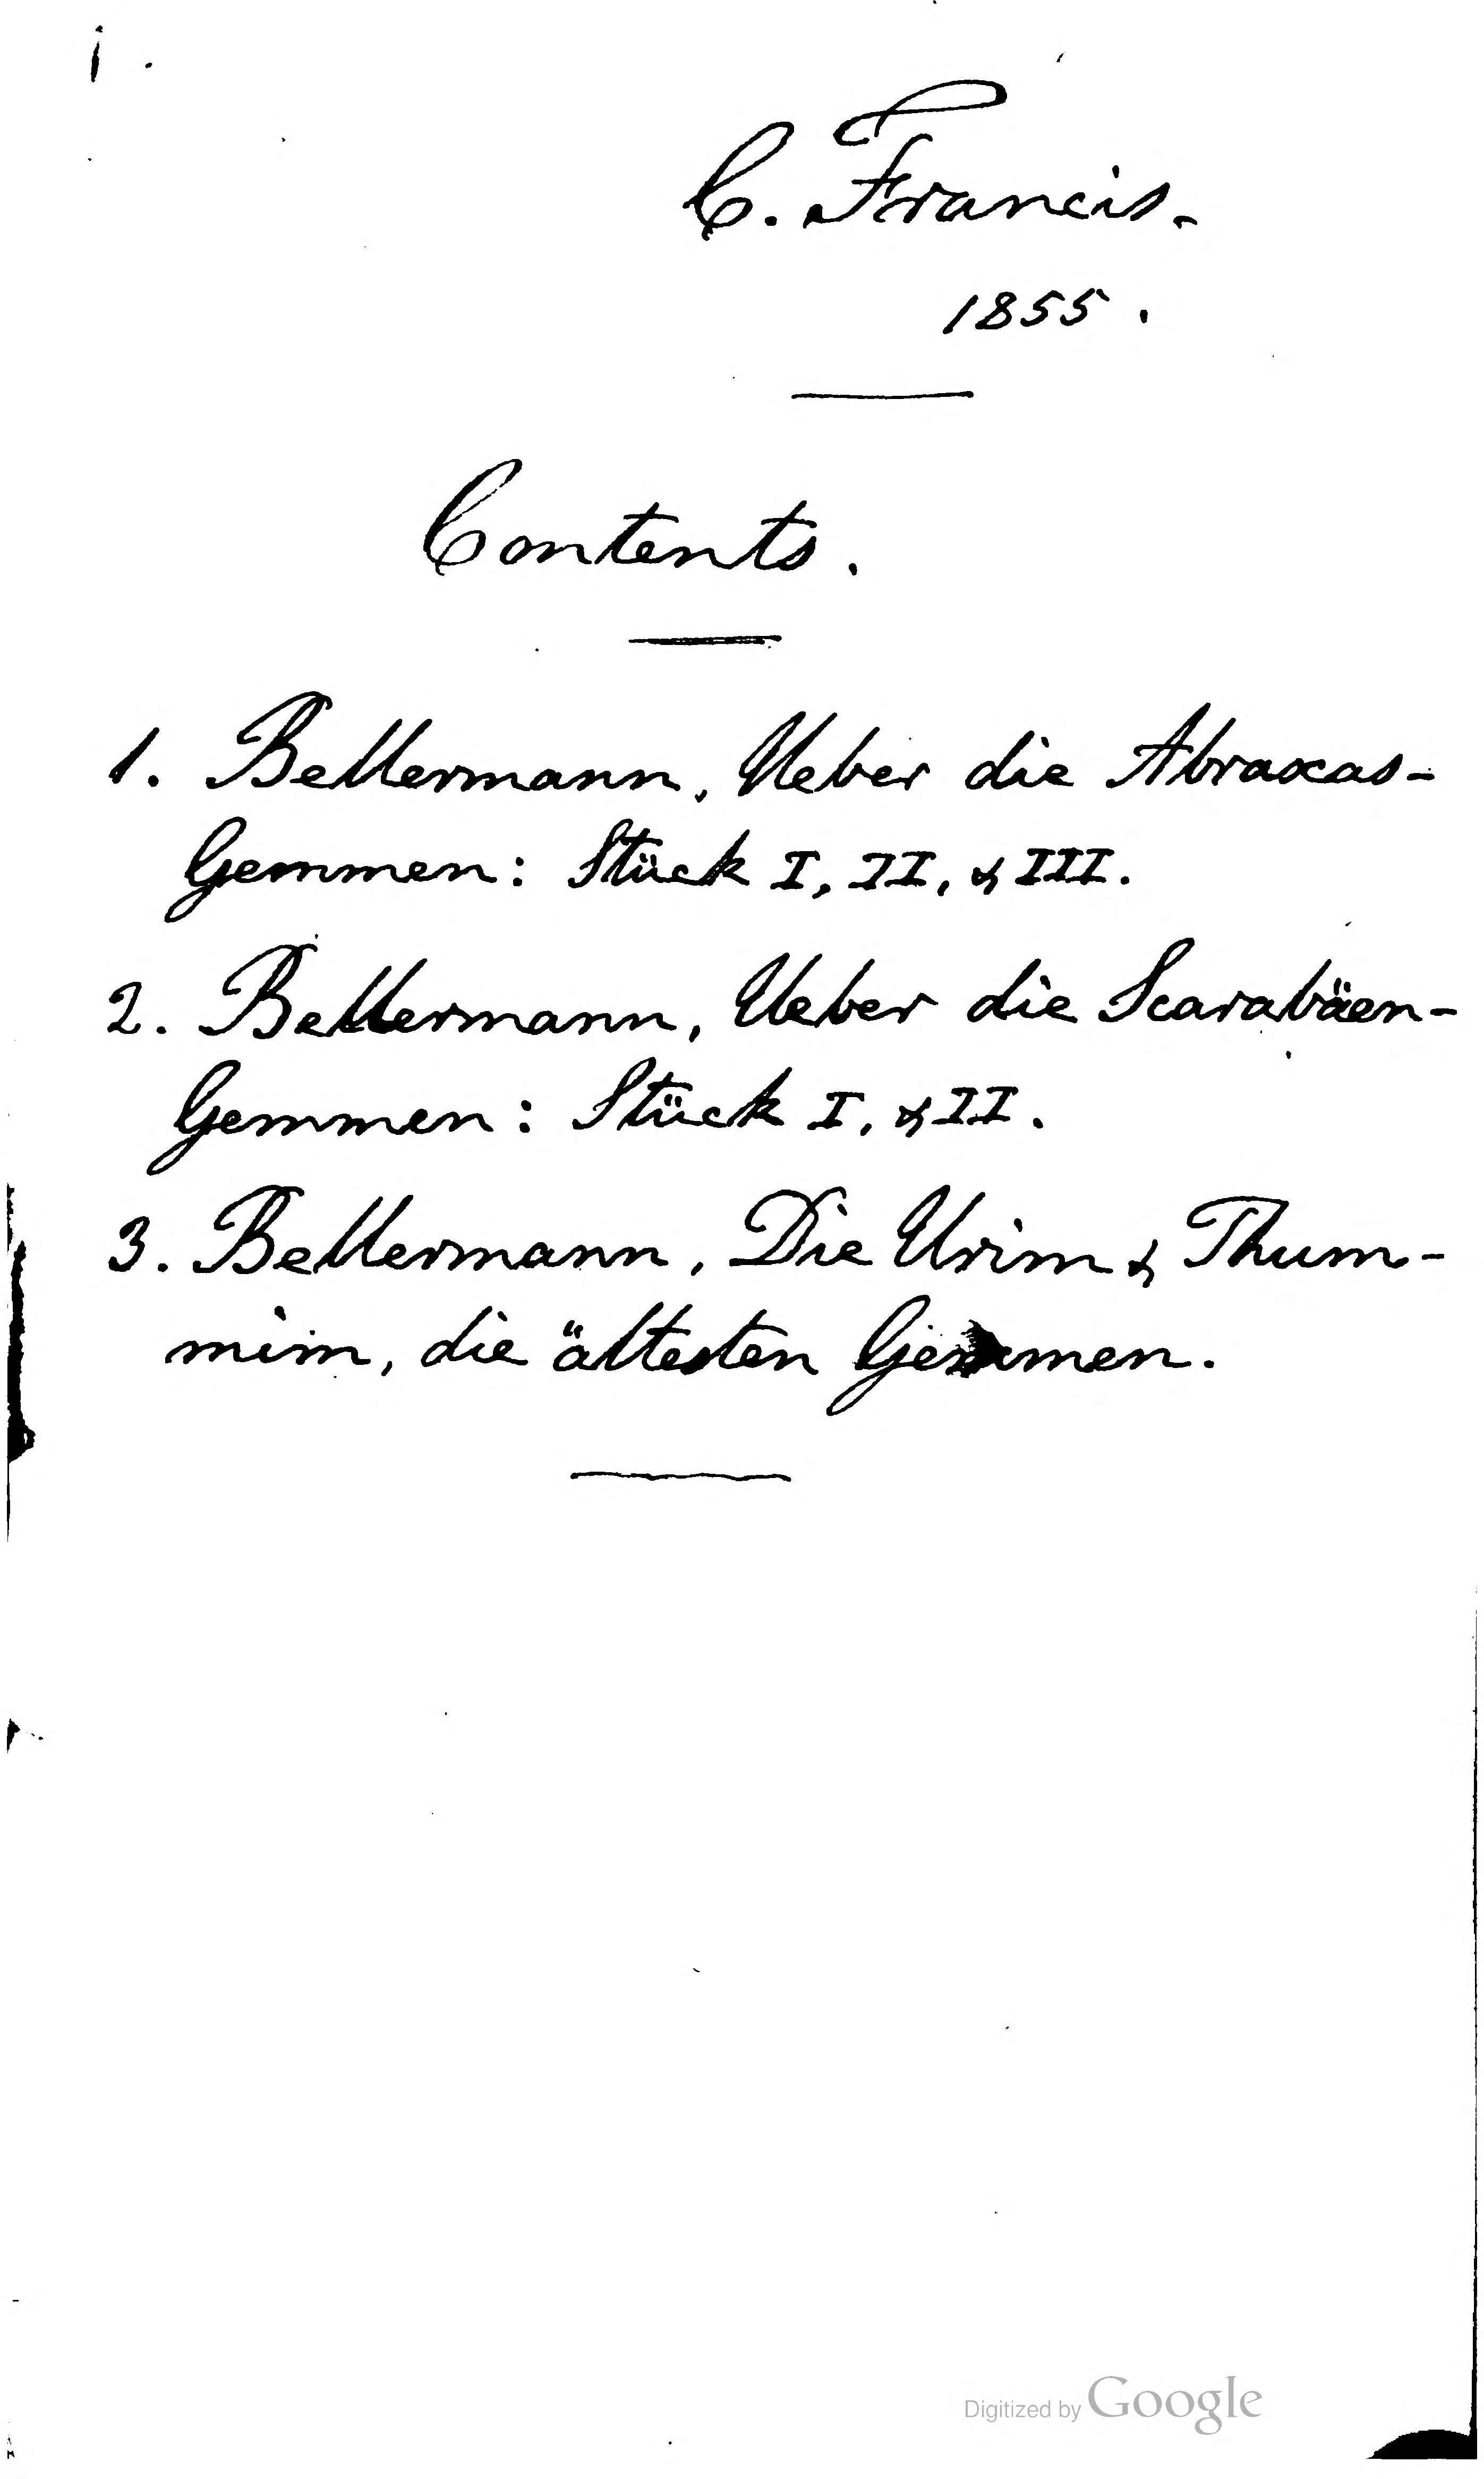 C. Francis.
1855.
Contents.
1. Bellermann, Ueber die Abraxas-
Gemmen: Stück I, II, & III.
2. Bellermann, Ueber die Scarabäen-
Gemmen: Stück I, & II.
3. Bellermann, Die Urim & Thum-
mim, die ältesten Gemmen.
Digitized by Google